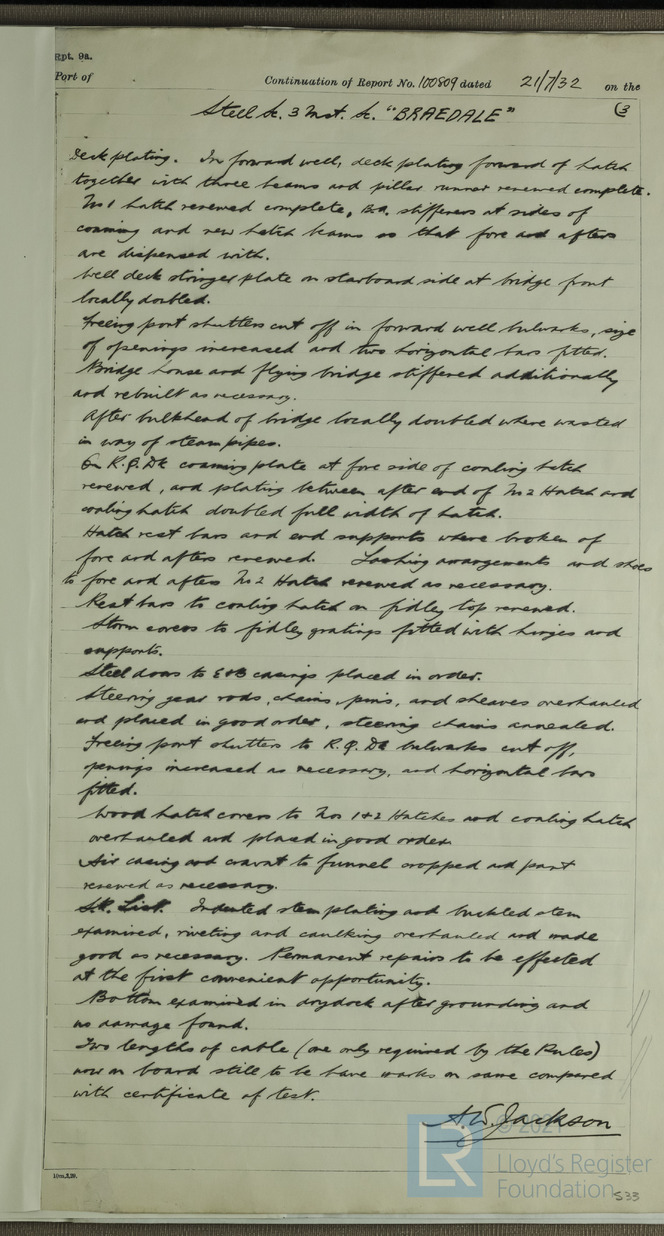 Rpt. 9a.
Port of
Continuation of Report No. 100809 dated 21/7/32 on the
(3
Steel Sc. 3 Mst. Sc. "BRAEDALE"
Deck plating. In forward well, deck plating forward of hatch
together with three beams and pillar runner renewed complete.
No 1 hatch renewed complete, B.A. stiffeners at sides of
coaming and new hatch beams so that fore and afters
are dispensed with.
Well deck stringer plate on starboard side at bridge front
locally doubled.
Freeing port shutters cut off in forward well bulwarks, size
of openings increased and two horizontal bars fitted.
Bridge house and flying bridge stiffened additionally
and rebuilt as necessary.
After bulkhead of bridge locally doubled where wasted
in way of steam pipes.
On R.Q. Dk coaming plate at fore side of coaling hatch
renewed, and plating between after end of No 2 Hatch and
coaling hatch doubled full width of hatch.
Hatch rest bars and end supports where broken of
fore and afters renewed. Lashing arrangements and shoes
to fore and afters No 2 Hatch renewed as necessary.
Rest bars to coaling hatch on fidley top renewed.
Storm covers to fidley gratings fitted with hinges and
supports.
Steel doors to E&B casings placed in order.
Steering gear rods, chains, pins, and sheaves overhauled
and placed in good order, steering chains annealed.
Freeing port shutters to R.Q. Dk bulwarks cut off,
openings increased as necessary, and horizontal bars
fitted.
Wood hatch covers to Nos 1+2 Hatches and coaling hatch
overhauled and placed in good order.
Air casing and cravat to funnel cropped and part
renewed as necessary.
S.R. List. Indented stem plating and buckled stem
examined, riveting and caulking overhauled and made
good as necessary. Permanent repairs to be effected
at the first convenient opportunity.
Bottom examined in drydock after grounding and
no damage found.
Two lengths of cable (one only required by the Rules)
now on board still to be have marks on same compared
with certificate of test.
A.W. Jackson
© 2021
Lloyd's Register
Foundation
LR
533